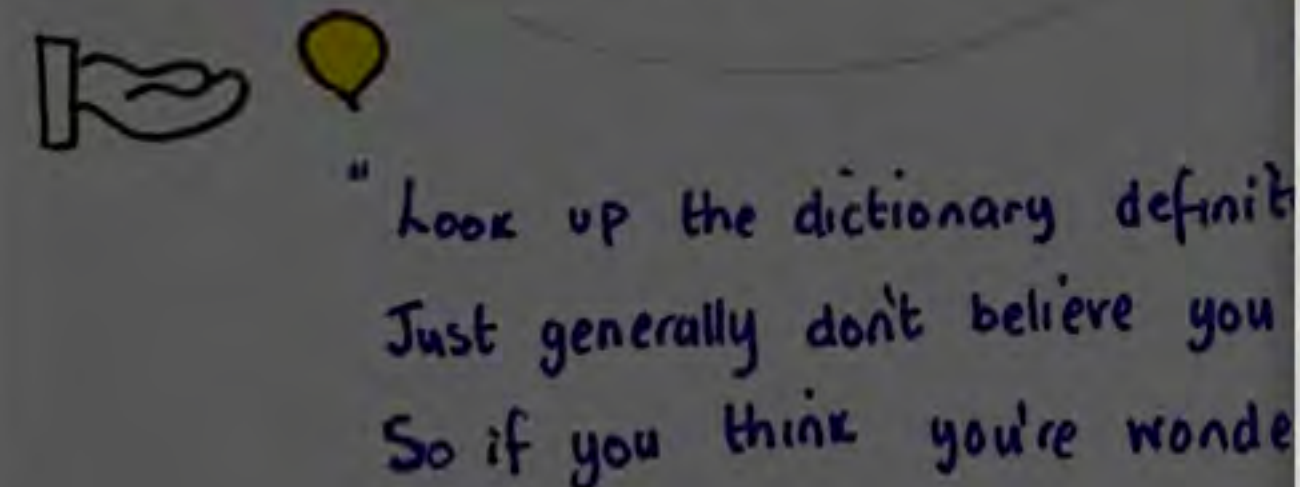 " Look up the dictionary definit
Just generally don't believe you
So if you think you're wonde